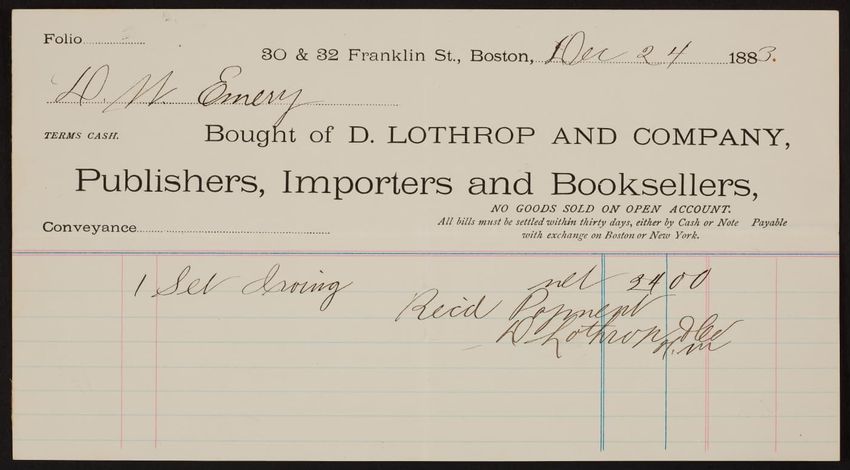 Folio
30 & 32 Franklin St., Boston, Dec 24 1883.
D. W. Emery
TERMS CASH. Bought of D. LOTHROP AND COMPANY,
Publishers, Importers and Booksellers,
NO GOODS SOLD ON OPEN ACCOUNT.
All bills must be settled within thirty days, either by Cash or Note Payable
with exchange on Boston or New York.
Conveyance
1 Set Irving net 24 00
Rec'd Payment
D Lothrop & Co